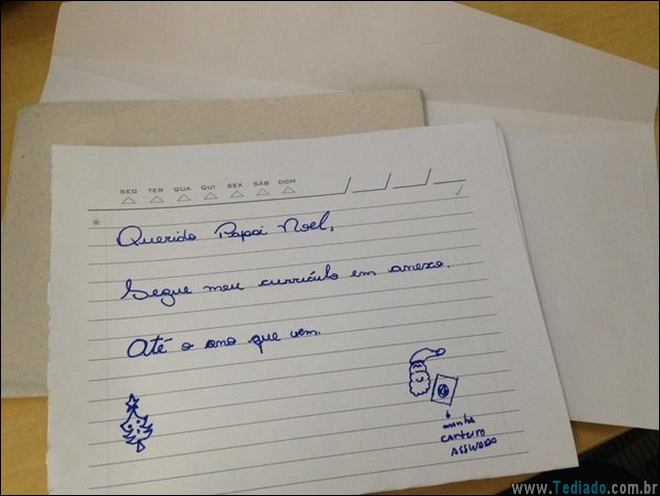 SEG TER QUA QUI SEX SÁB DOM
Querido Papai Noel,
Segue meu currículo em anexo.
Até o ano que vem.
minha
carteira
ASSINADO
www.Tediado.com.br